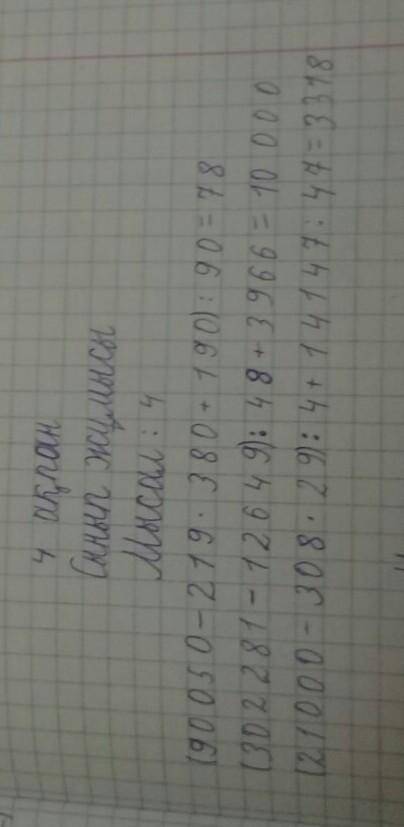 4 ақпан
Сынып жұмысы
Мысал: 4
(90050-219·380+190):90=78
(302281-12649):48+3966=10000
(21000-308·29):4+14147:47=3318